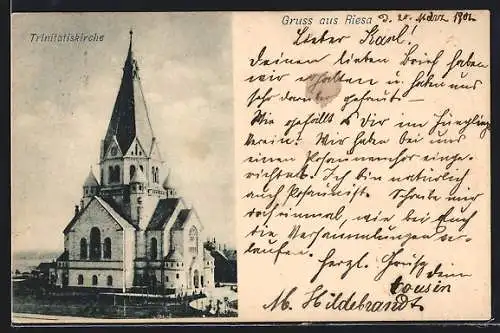 Trinitatiskirche
Gruss aus Riesa d. 20. März 1902
Lieber Karl!
Deinen lieben Brief haben
wir erhalten u. haben uns
sehr darüber gefreut. –
Wie gefällt es Dir im Jünglings
Verein? Wir haben bei uns
einen Posaunenchor einge-
richtet. Ich bin natürlich
auch Posaunist. Schreibe mir
doch einmal, wie bei Euch
die Versammlungen ver-
laufen. Herzl. Gruß
dein
Cousin
M. Hildebrandt.